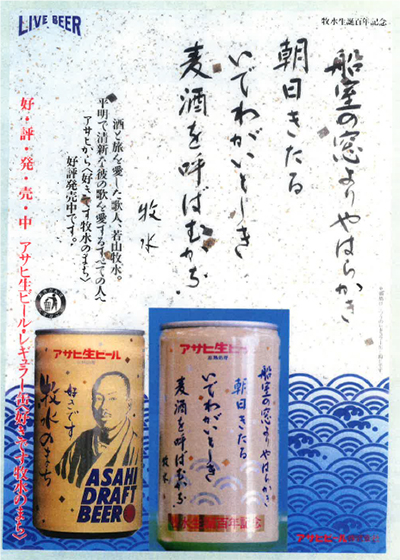 LIVE BEER
牧水生誕百年記念
船室の窓よりやはらかき
朝日きたる
いでわがいとしき
麦酒を呼ばむかな
牧水
酒と旅を愛した歌人、若山牧水。
平明で清新な彼の歌を愛するすべての人へ
アサヒから〈好きです牧水のまち〉
好評発売中です。
好・評・発・売・中
アサヒ生ビール・レギュラー缶〈好きです牧水のまち〉
アサヒ生ビール
好きです
牧水のまち
ASAHI
DRAFT
BEER
アサヒ生ビール
船室の窓よりやはらかき
朝日きたる
いでわがいとしき
麦酒を呼ばむかな
牧水
牧水生誕百年記念
アサヒビール